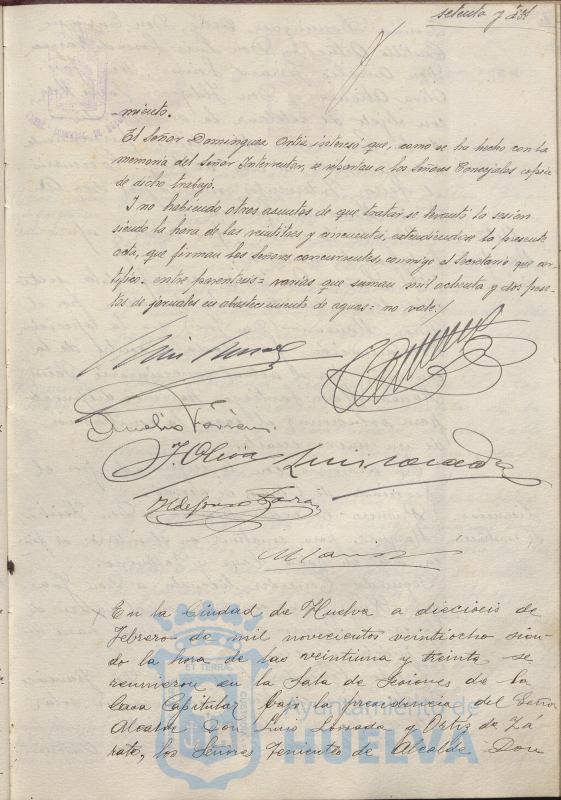 setenta y
miento.
El Señor Dominguez Ortiz interesó que, como se ha hecho con la
memoria del Señor Interventor, se repartan a los Señores Concejales copia
de dicho trabajo.
Y no habiendo otros asuntos de que tratar se levantó la sesión
siendo la hora de las veintitres y cincuenta, extendiendose la presente
acta, que firman los Señores concurrentes, conmigo el Secretario que cer-
tifico. entre parentesis = varias que suman mil ochenta y dos pese-
tas de jornales en abastecimiento de aguas = no vale./
J. Oliva
En la Ciudad de Huelva a dieciocis de
Febrero de mil novecientos veintiocho sien-
do la hora de las veintiuna y treinta se
reunieron en la Sala de Sesiones de la
Casa Capitular bajo la presidencia del Señor
Alcalde Don Luis Losada y Ortiz de Zá-
rate, los Señores Tenientes de Alcalde Don
Ayuntamiento de
HUELVA